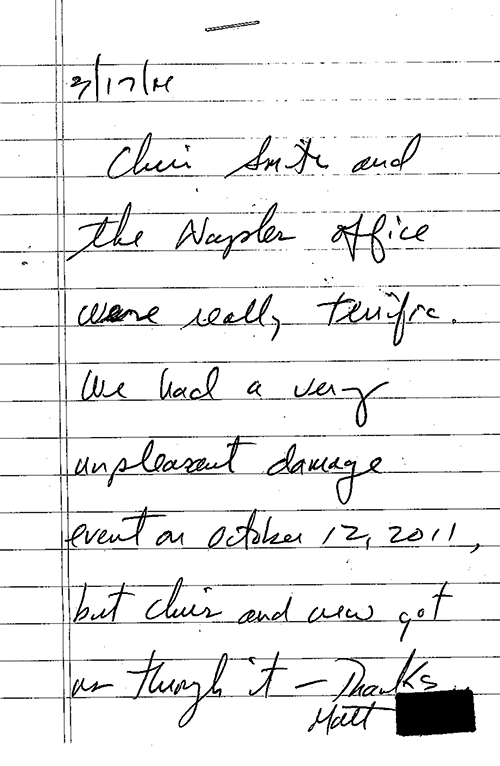 3/17/12
Chris Smith and
the Naples office
were really terrific.
We had a very
unpleasant damage
event on October 12, 2011,
but Chris and crew got
us through it – Thanks
Matt